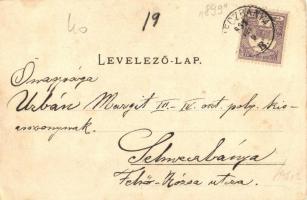 40 19 1899
LEVELEZŐ-LAP.
Őnagysága
Urbán Margit III-IV oszt. polg. kis-
asszonynak.
Selmecbánya
Felső-Rózsa utca.